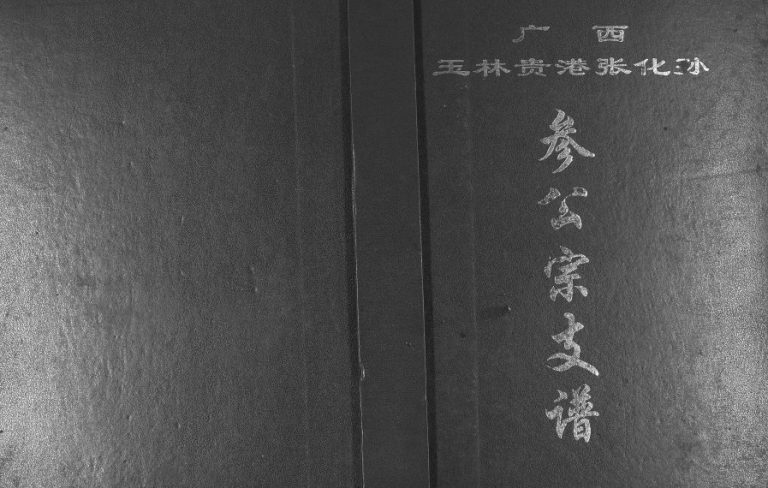 广西
玉林贵港张化孙
参公宗支谱